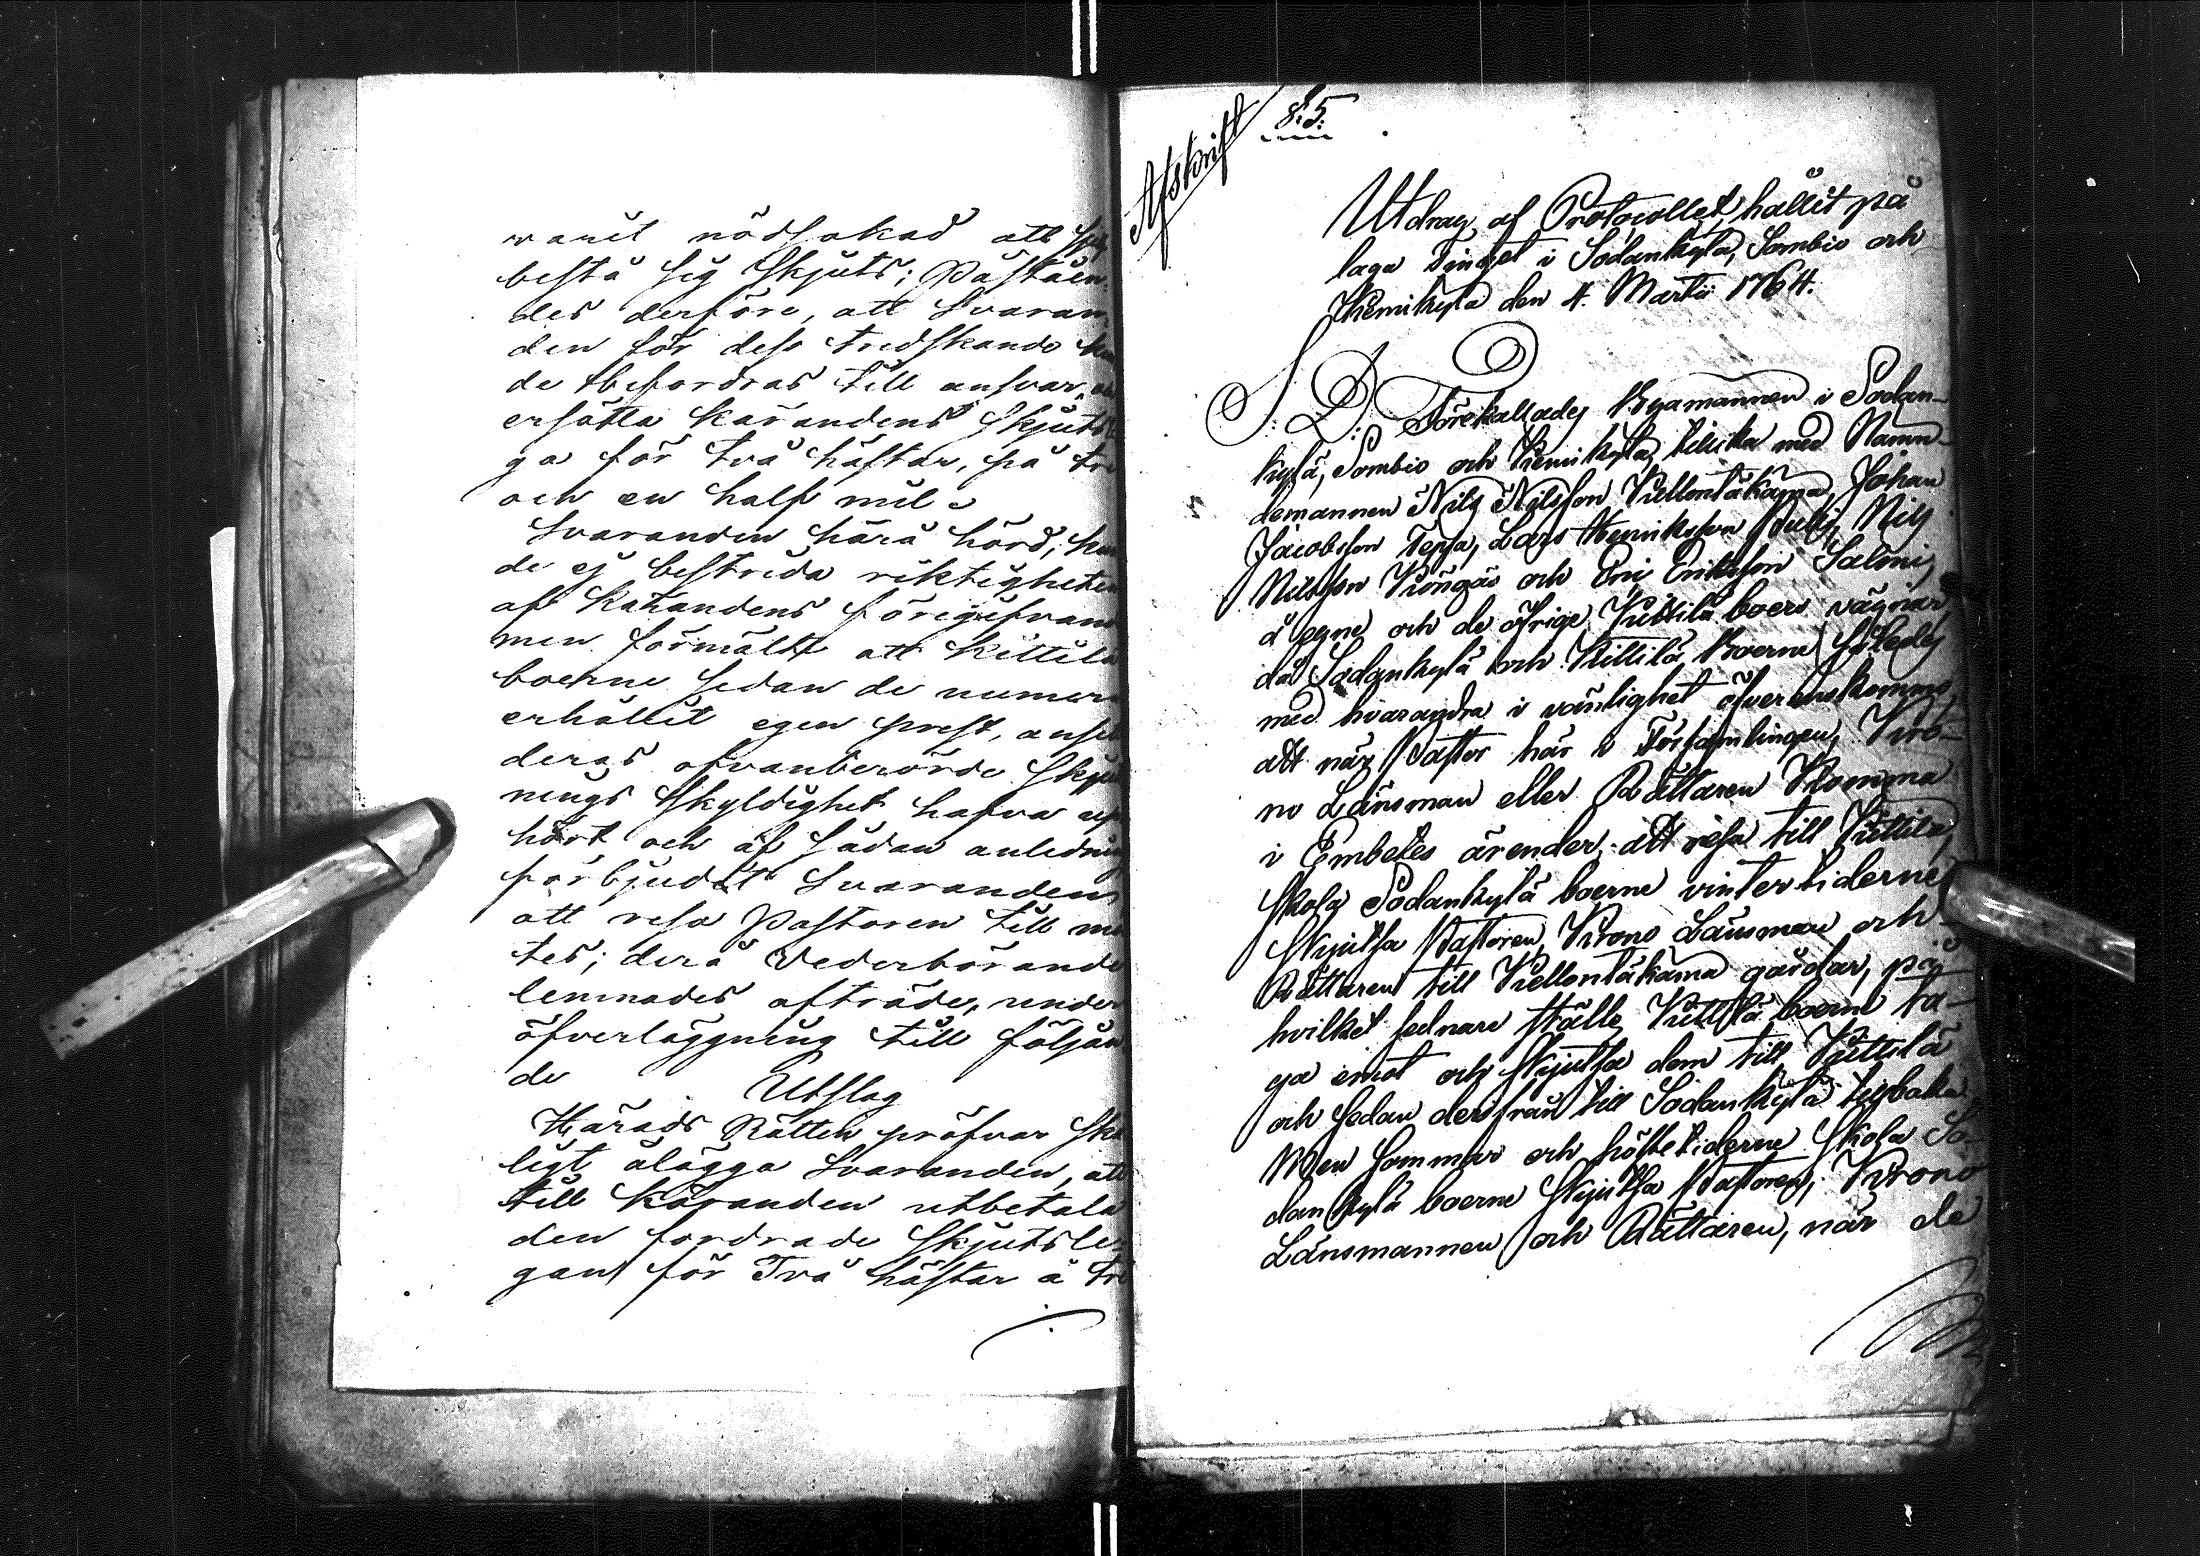 warit nödsakad att
bestå sig Skjuts; Påståen-
des derföre, att Svaran
den för dess tredskande
de befordras till ansvar,
ersätta Kärandens Skjuts
ga för två hästar, på tre
och en half mil
Svaranden härå hörd,
de ej bestrida riktigheten
af Kärandens föregifvan
men förmälte att Kittilä
boerne sedan de numera
erhållit egen prest, anse
deras ofvanberörde Skjuts
nings Skyldighet hafva up
hört och af sådan anledning
förbjudit Svaranden
att resa Pastoren till mö
tes; derå Vederbörande
lemnades afträde, under
öfverläggning till följan
de
Utslag
Härads Rätten pröfvar Skä
ligt ålägga Svaranden, att
till Käranden utbetala
den fordrade Skjutsle
gan för Två hästar à tre
Afskrift
§:5.
Utdrag af Protocollet, hållit på
laga Tinget i Sodankylä, Sombio och
Kemikylä den 4. Martii 1764.
S. D. Förekallades Byamännen i Sodan-
kylä, Sombio och Kemikylä, tillika med Nämn-
demannen Nils Nilsson Kiellontäkama, Johan
Jacobsson Tepsa, Lars Henriksson Nils
Nilsson Kiöngäs och Eric Ericksson Salmi,
å egne och de öfrige Kittilä boers vägnar,
då Sodankylä och Kittilä Boerne Således
med hvarandra i vänlighet öfverenskommo,
att när Pastor här i Församlingen, Kro-
no Länsman eller Rättaren Komma
i Embetes ärender, att resa till Kittilä,
Skola Sodankylä boerne vintertiderne
Skjutsa Pastoren, Krono Länsman och
Rättaren till Kiellontäkama gårdar, på
hvilket sednare Ställe Kittilä boerne ta-
ga emot och Skjutsa dem till Kittilä
och sedan derifrån till Sodankylä tillbaka.
Men Sommar och hösttiderne Skola So-
dankylä boerne Skjutsa Pastoren, Krono
Länsmannen och Rättaren, när de